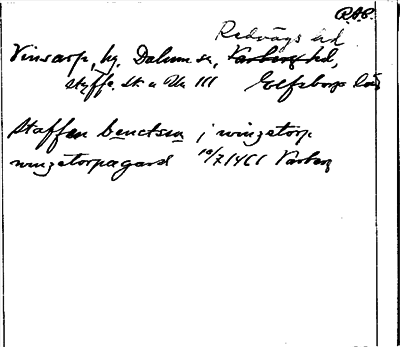 R.A.P.
Redvägs hd
Vinsarp, hg. Dalum sn, Varbergs hd,
Styffe, Sk. u. Un. III Elfsborgs län
Staffan benctsen j winzetorp
winzetorpagard 10/7 1461 Varberg